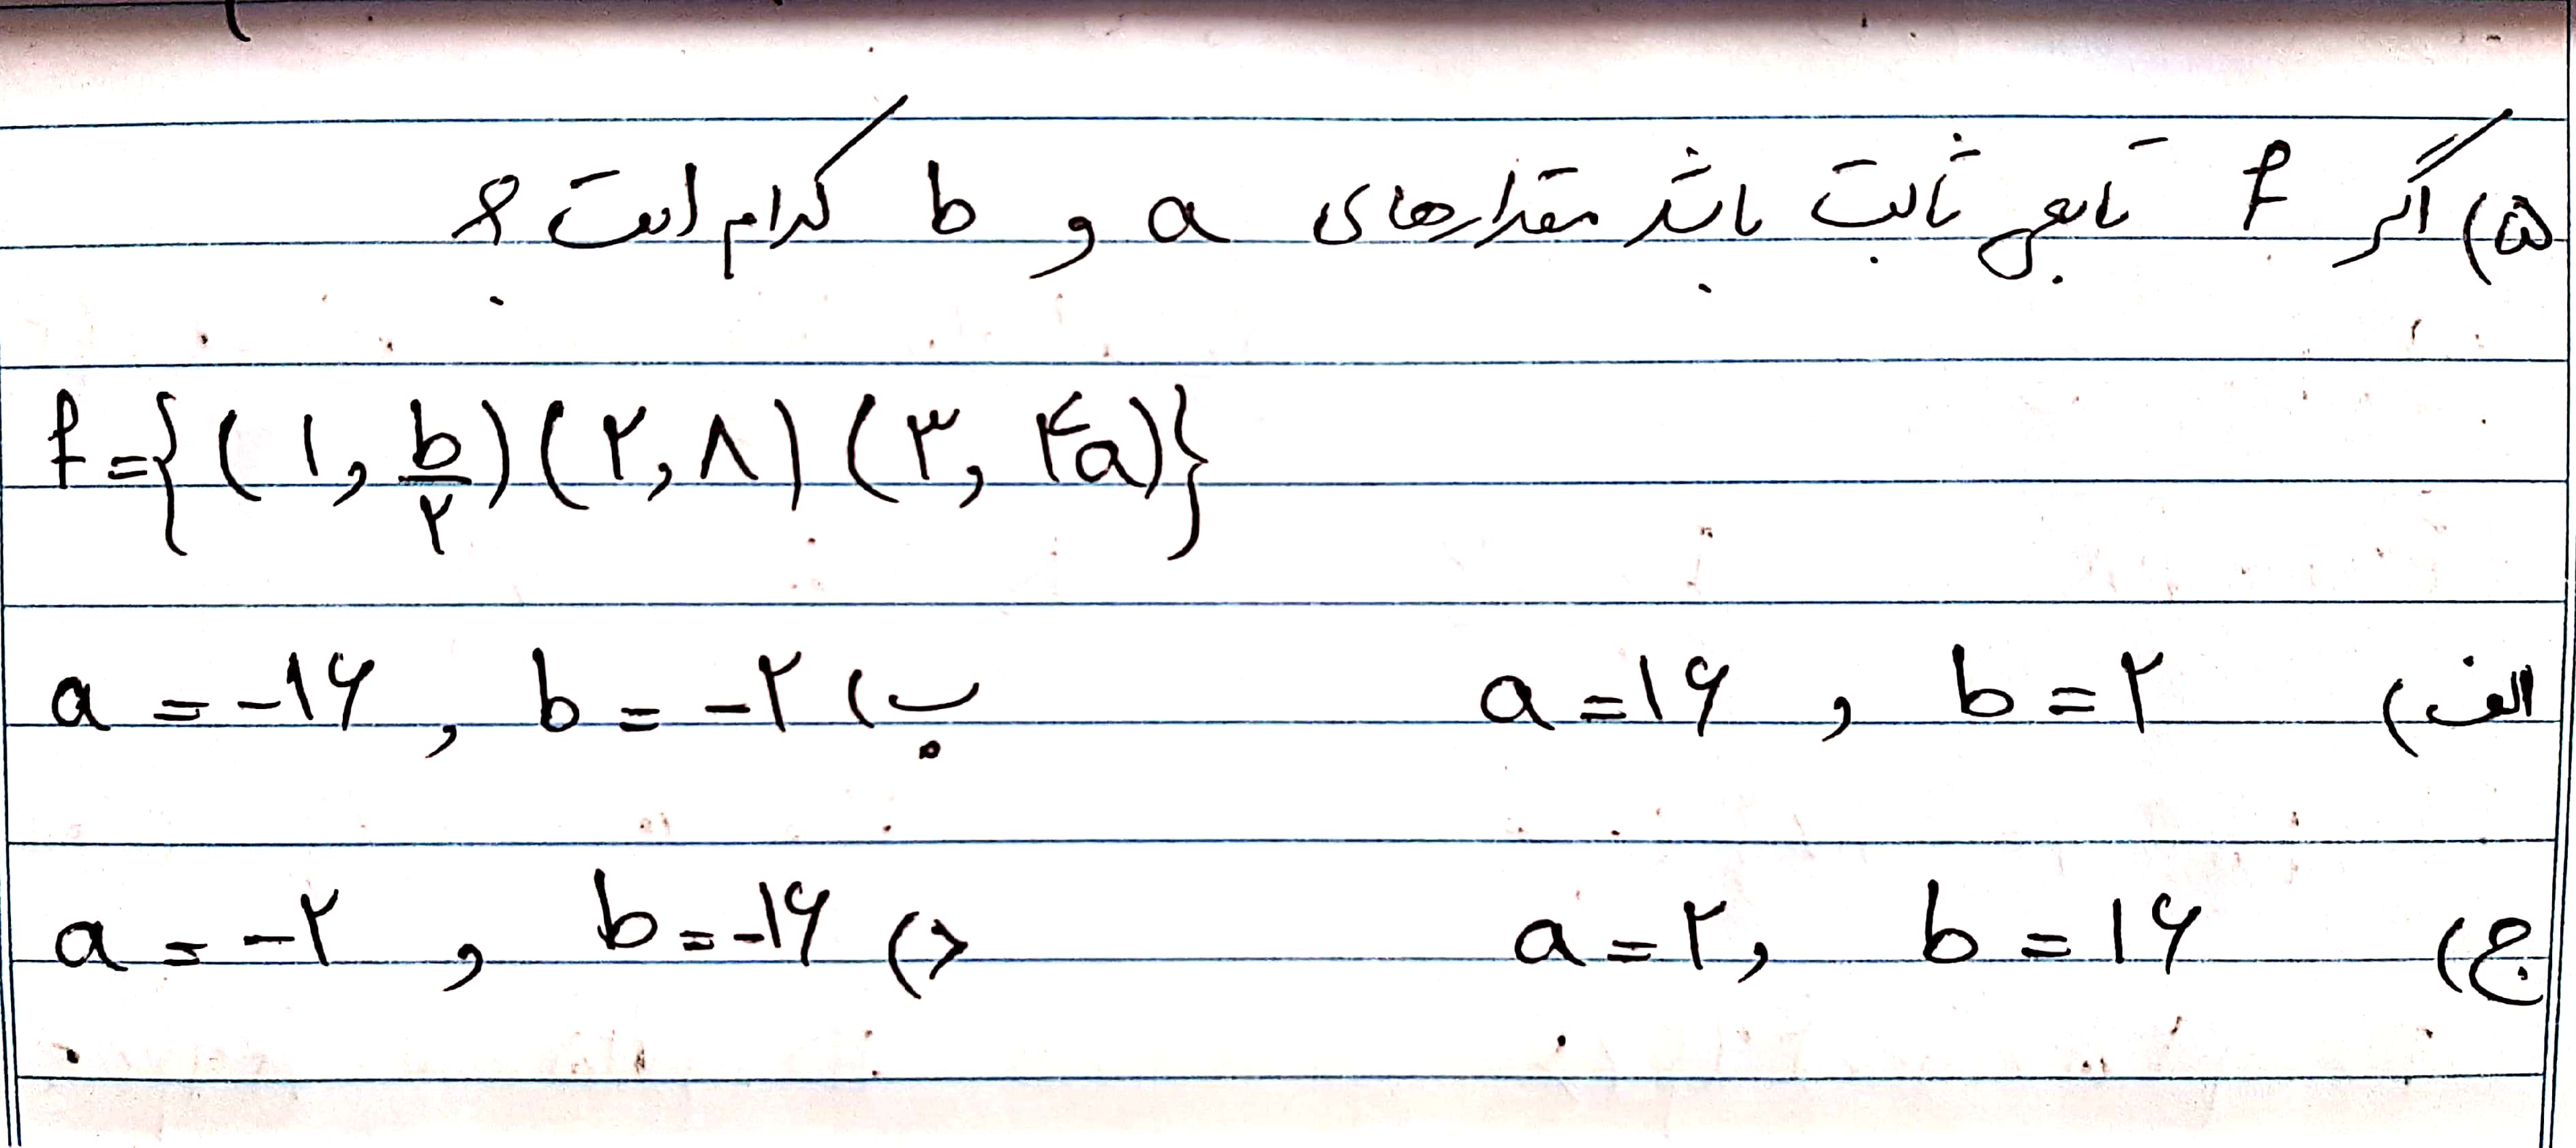 ۵) اگر f تابعی ثابت باشد مقدارهای a و b کدام است؟
f={(۱, b/۲)(۲,۸)(۳, ۴a)}
الف) a=۱۶ , b=۲ ب) a=-۱۶ , b=-۲
ج) a=۲, b=۱۶ د) a=-۲ , b=-۱۶